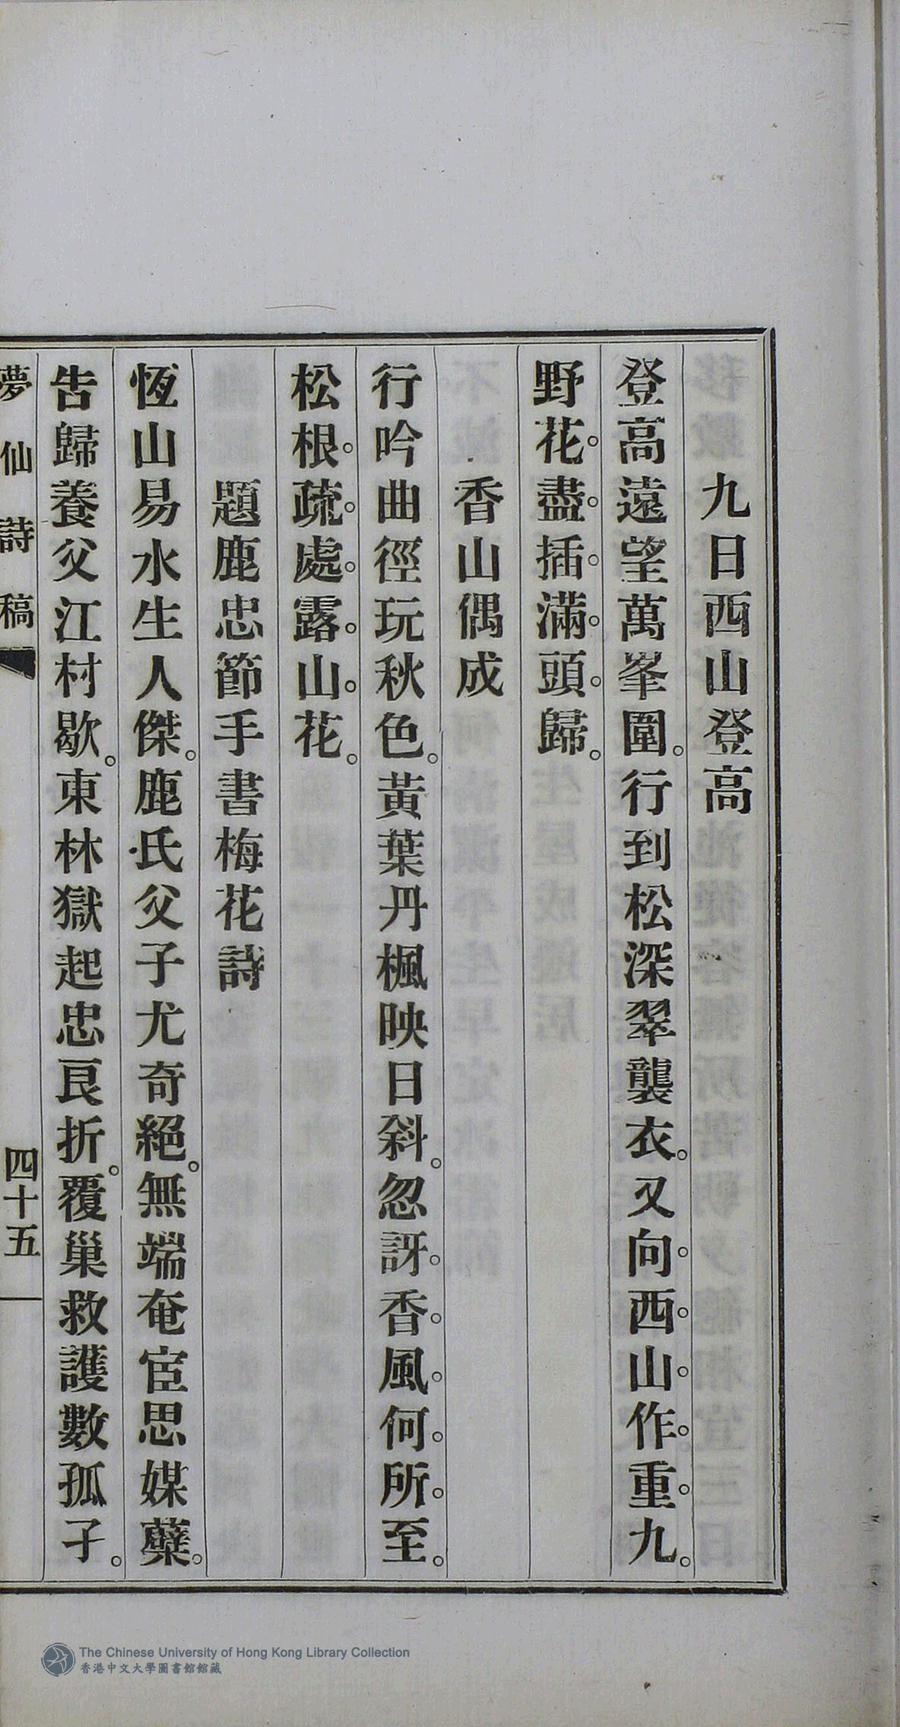 九日西山登高
登高遠望萬峯圍。行到松深翠襲衣。又向西山作重九。
野花盡插滿頭歸。
香山偶成
行吟曲徑玩秋色。黃葉丹楓映日斜。忽訝香風何所至。
松根疏處露山花。
題鹿忠節手書梅花詩
恆山易水生人傑。鹿氏父子尤奇絕。無端奄宦思媒蘖。
告歸養父江村歇。東林獄起忠良折。覆巢救護數孤子。
夢仙詩稿
四十五
The Chinese University of Hong Kong Library Collection
香港中文大學圖書館館藏